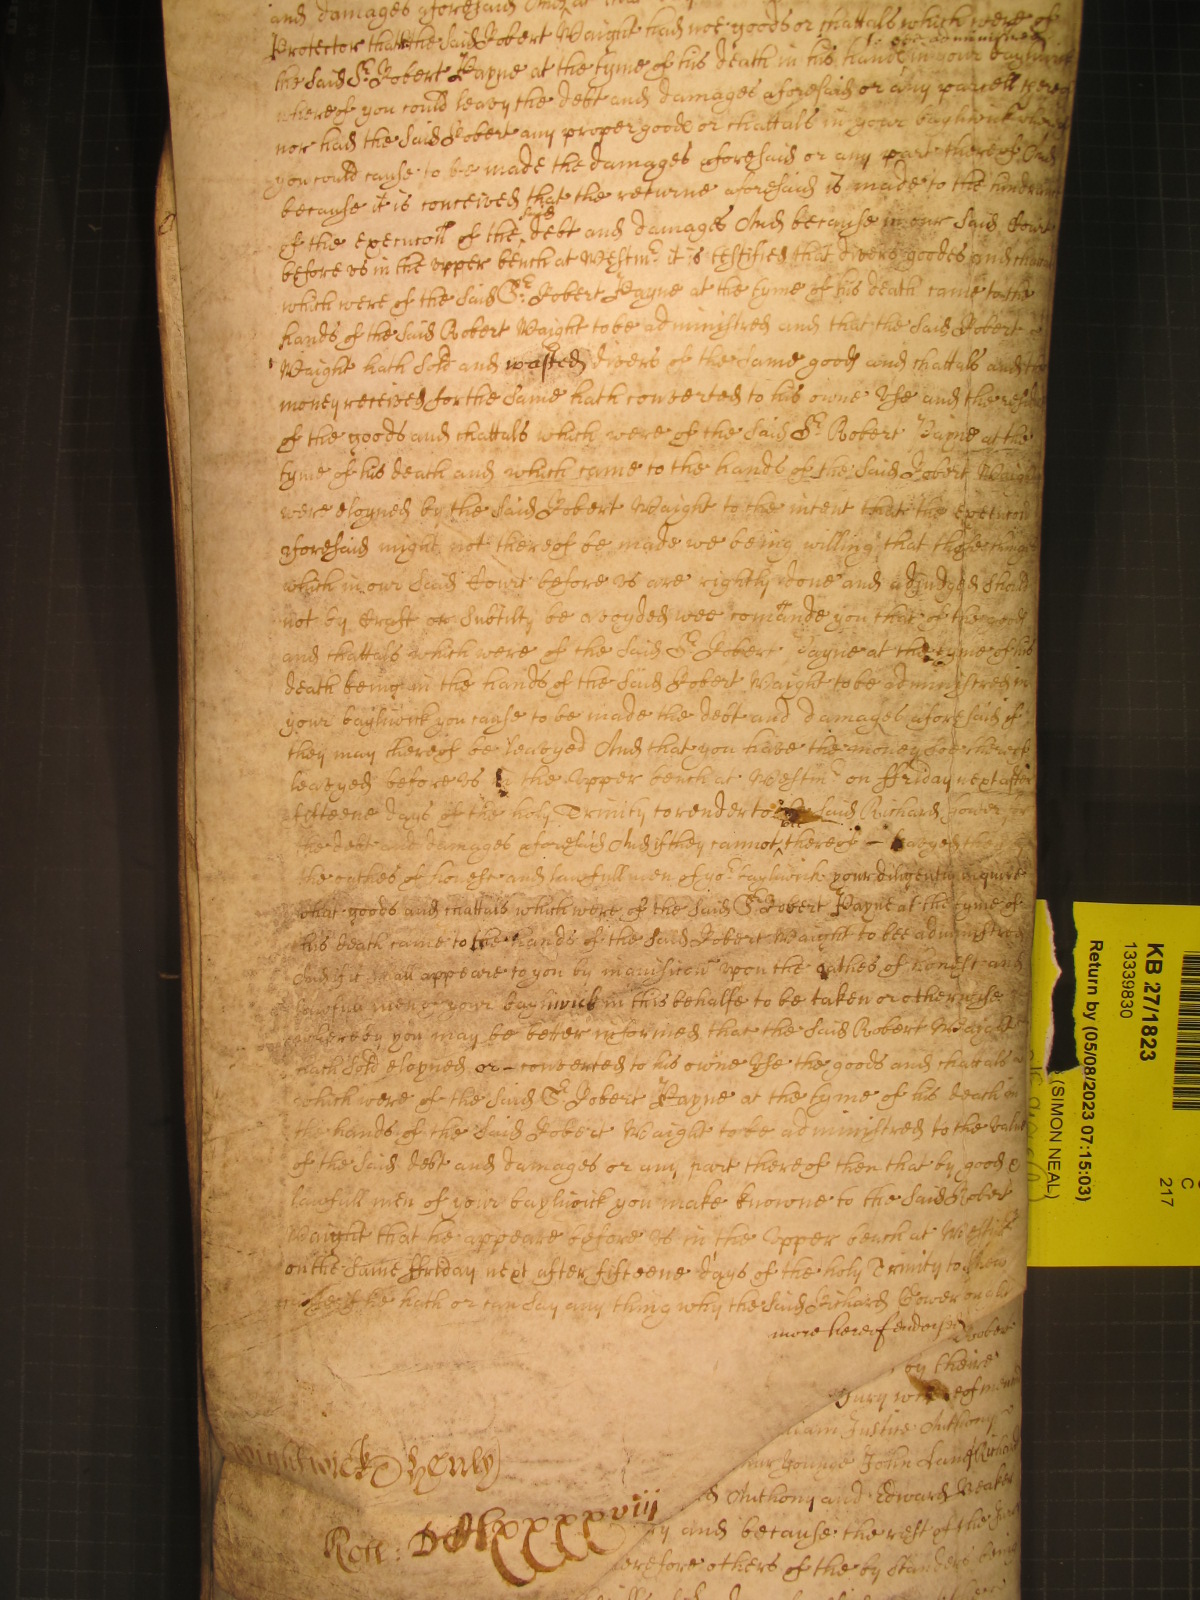 and damages aforesaid And at
Protector that the said Robert Waight had not goods or chattals which were of
to bee administred
the said Sr. Robert Payne at the tyme of his death in his hands in your bayliwick
whereof you could leavy the debt and damages aforesaid or any parcell thereof
nor had the said Robert any proper goods or chattals in your bayliwick whereof
you could cause to be made the damages aforesaid or any part thereof And
because it is conceived that the returne aforesaid is made to the
said
of the execucon of the debt and damages And because in our said Court
before us in the upper bench at Westmr. it is testified that divers goodes and chattals
which were of the said Sr. Robert Payne at the tyme of his death came to the
hands of the said Robert Waight to be administred and that the said Robert
Waight hath sold and wasted divers of the same goods and chattals and the
money received for the same hath converted to his owne Use and the residue
of the goods and chattals which were of the said Sr. Robert Payne at the
tyme of his death and which came to the hands of the said Robert Waight
were eloyned by the said Robert Waight to the intent that the execucon
aforesaid might not thereof be made we being willing that those things
which in our said Court before us are rightly done and adjudged should
not by Craft or Subtilty be avoyded wee comande you that of the goods
and chattals which were of the said Sr. Robert Payne at the tyme of his
death being in the hands of the said Robert Waight to be administred in
your bayliwick you cause to be made the debt and damages aforesaid if
they may thereof be leavyed And that you have the money soe thereof
leavyed before us in the Upper bench at Westmr. on ffriday next after
fifteene days of the holy Trinity to render to the said Richard Gower for
bee
the debt and damages aforesaid And if they cannot thereof - leavyed then by
the oathes of honest and lawfull men of yor. bayliwick your diligently inquire
what goods and chattals which were of the said Sr. Robert Payne at the tyme of
his death came to the hands of the said Robert Waight to bee administred
And if it shall appeare to you by inquisicon upon the oathes of honest and
lawfull men of your bayliwick in this behalfe to be taken or otherwise
whereby you may be better informed that the said Robert Waight
hath sold eloyned or - converted to his owne Use the goods and chattals
which were of the said Sr. Robert Payne at the tyme of his death in
the hands of the said Robert Waight to be administred to the value
of the said debt and damages or any part thereof then that by good &
lawfull men of your bayliwick you make knowne to the said Robert
Waight that he appeare before us in the Upper bench at Westmr.
on the same ffriday next after fifteene days of the holy Trinity to shew
if he hath or can say any thing why the said Richard Gower
more hereof endorsed
Robert
by theire
Jury
Justice Anthony
Younge John Lane Richard
Anthony and Edward
and because the rest of the Jury
therefore others of the by standers being
Wightwick Henly
Roll: DClxxxxviij
KB 27/1823
13339830
Return by (05/08/2023 07:15:03)
(SIMON NEAL)
C
217